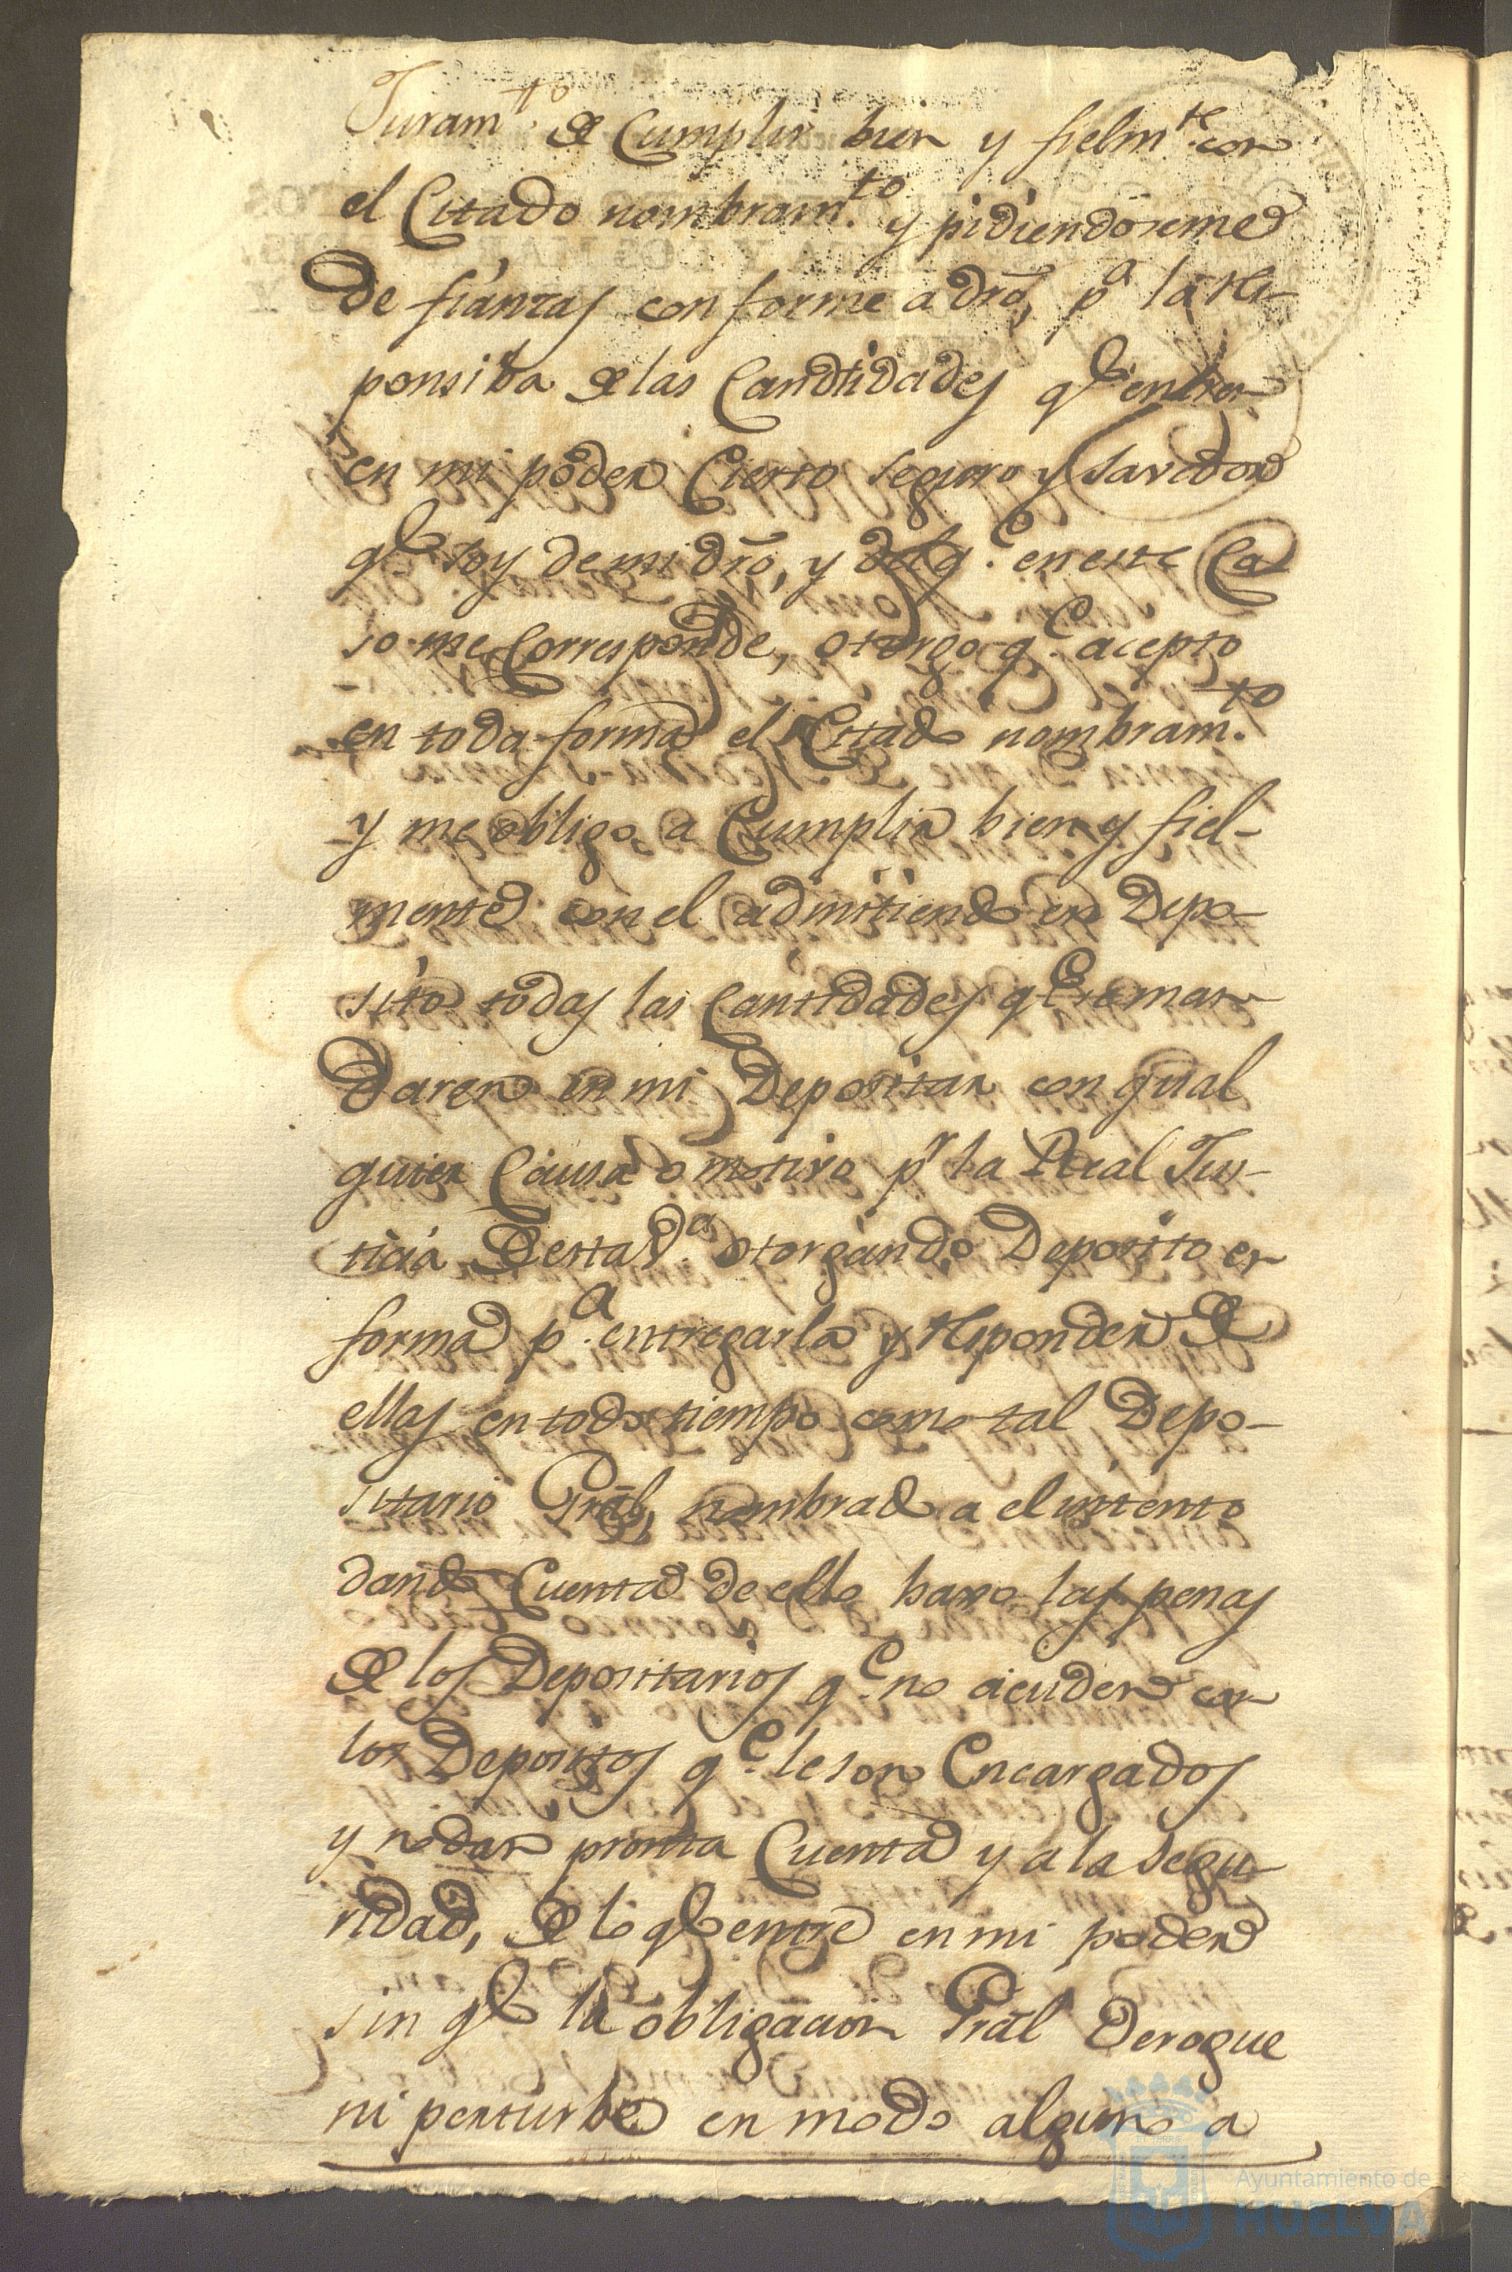 Juram.to de Cumplir bien y fielm.te con
el Citado nombram.to y pidiendoseme
de fianzas conforme a dro, p.a la res-
ponsiba de las Candtidades q.e entren
en mi poder Cierto seguro y savedor
q.e soy de mi dro, y del q.e en este Ca
so me Corresponde, otorgo q.e acepto
en toda forma el Citado nombram.to
y me obligo a Cumplir bien y fiel-
mente con el admitiendo en Depo-
sito todas las Cantidades q.e se man
daren en mi Depositar con qual
quier Causa o motivo p.r la Real Jus-
ticia de esta V.a otorgando Deposito en
forma p.a entregarla y responder de
ellas en todo tiempo como tal Depo-
sitario Gral, nombrado a el intento
dando Cuenta de ello baxo las penas
de los Depositarios q.e no acuden con
los Depositos q.e le son Encargados
y no dar pronta Cuenta y a la segu-
ridad, de lo q.e entre en mi poder
sin q.e la obligacion Gral Derogue
ni perturbe en modo alguno a
Ayuntamiento de
HUELVA